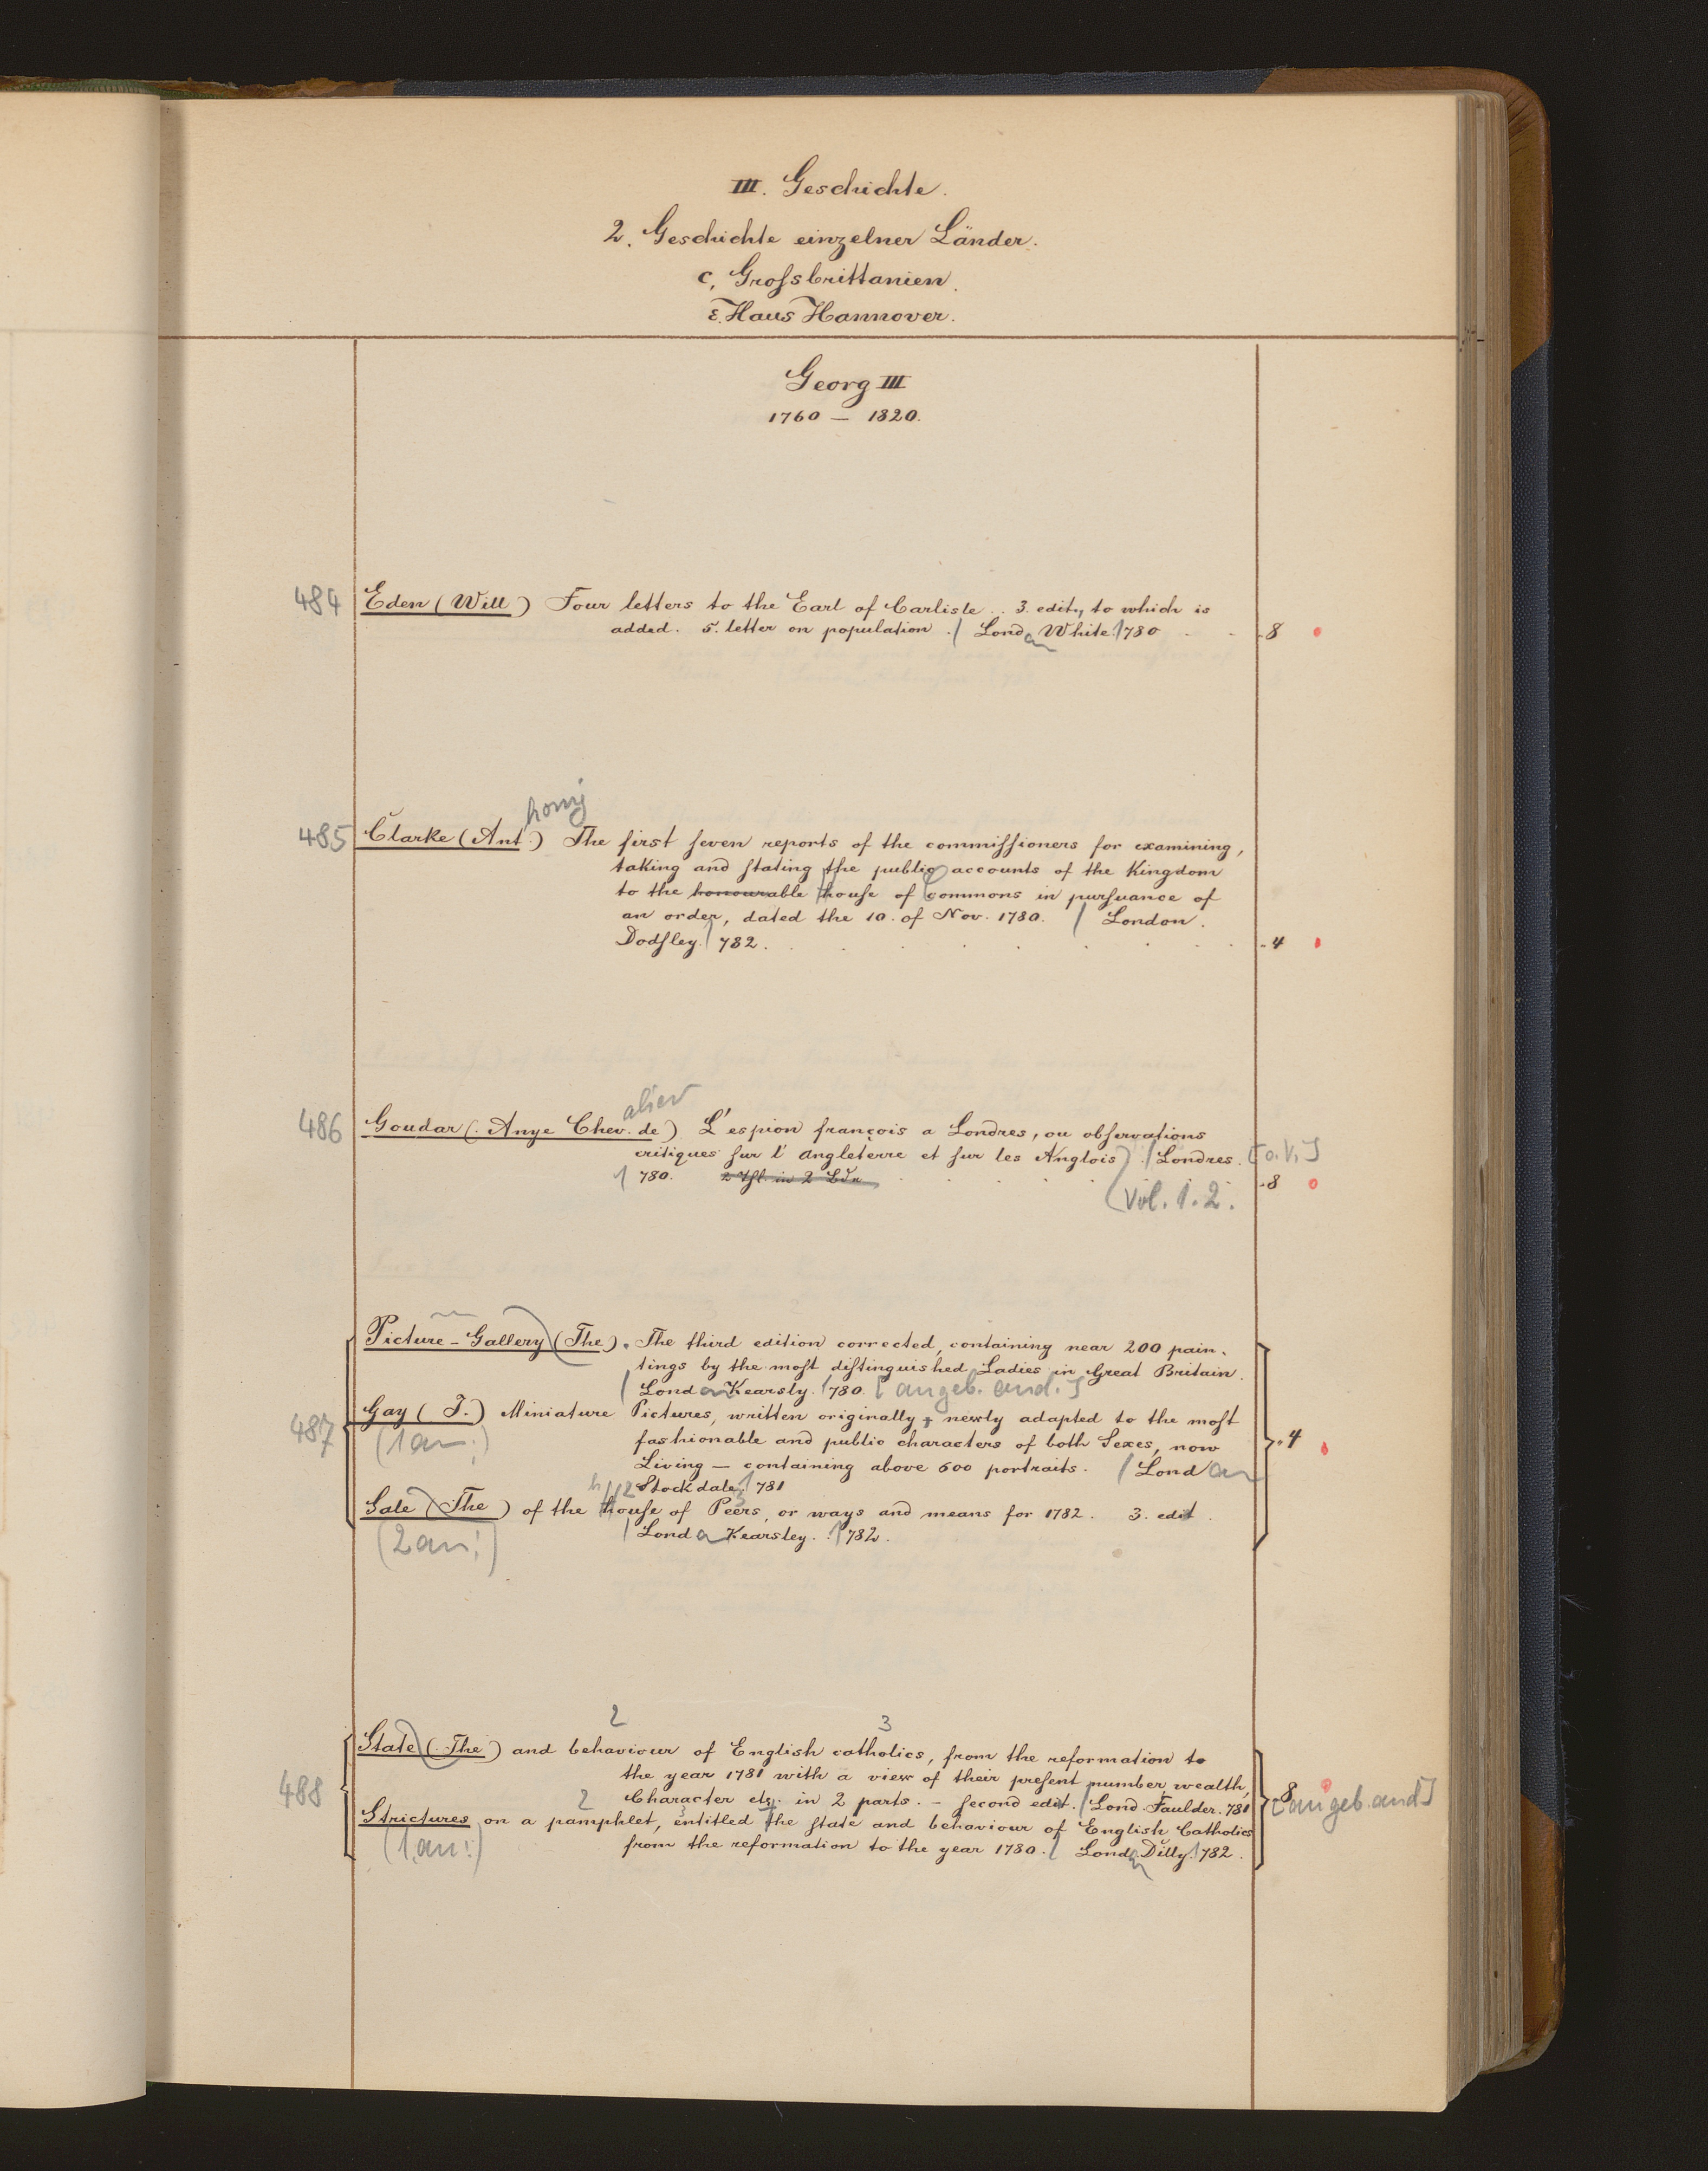 III. Geschichte.
2. Geschichte einzelner Länder.
c, Grofsbrittanien.
ε. Haus Hannover.
Georg III
1760 — 1820.
484 Eden (Will) Four letters to the Earl of Carlisle .. 3. edit, to which is
added. 5. letter on population. / Lond White. 780 . . 8
hony
485 Clarke (Ant.) The first seven reports of the commissioners for examining,
taking and stating the public accounts of the Kingdom
to the honourable house of commons in pursuance of
an order, dated the 10. of Nov. 1780. / London.
Dodsley. 782. . 4
alier
486 Goudar (. Ange Chev. de) L'espion françois a Londres, ou observations
critiques sur l'angleterre et sur les Anglois). / Londres. [o. V.]
780. 2 Thl. in 2 Bdn . 8
(Vol. 1. 2.
Picture-Gallery (The). The third edition corrected, containing near 200 pain-
tings by the most distinguished Ladies in Great Britain.
/ London Kearsly. / 780. [angeb. and.]
487 Gay (J.) Miniature Pictures, written originally, newly adapted to the most
(1 an:) fashionable and public characters of both Sexes, now . 4
Living — containing above 600 portraits. / London
Stockdale. / 781
Sale (The) of the house of Peers, or ways and means for 1782. 3. edit.
/ London Kearsley. / 782.
(2 an:)
2 3
State (The) and behaviour of English catholics, from the reformation to
the year 1781 with a view of their present number, wealth,
488 Character etc. in 2 parts. – second edit. / Lond. Faulder. 781 8 [angeb. and]
Strictures on a pamphlet, entitled the state and behaviour of English Catholics
(1 an:) from the reformation to the year 1780. / Lond. Dilly. / 782.